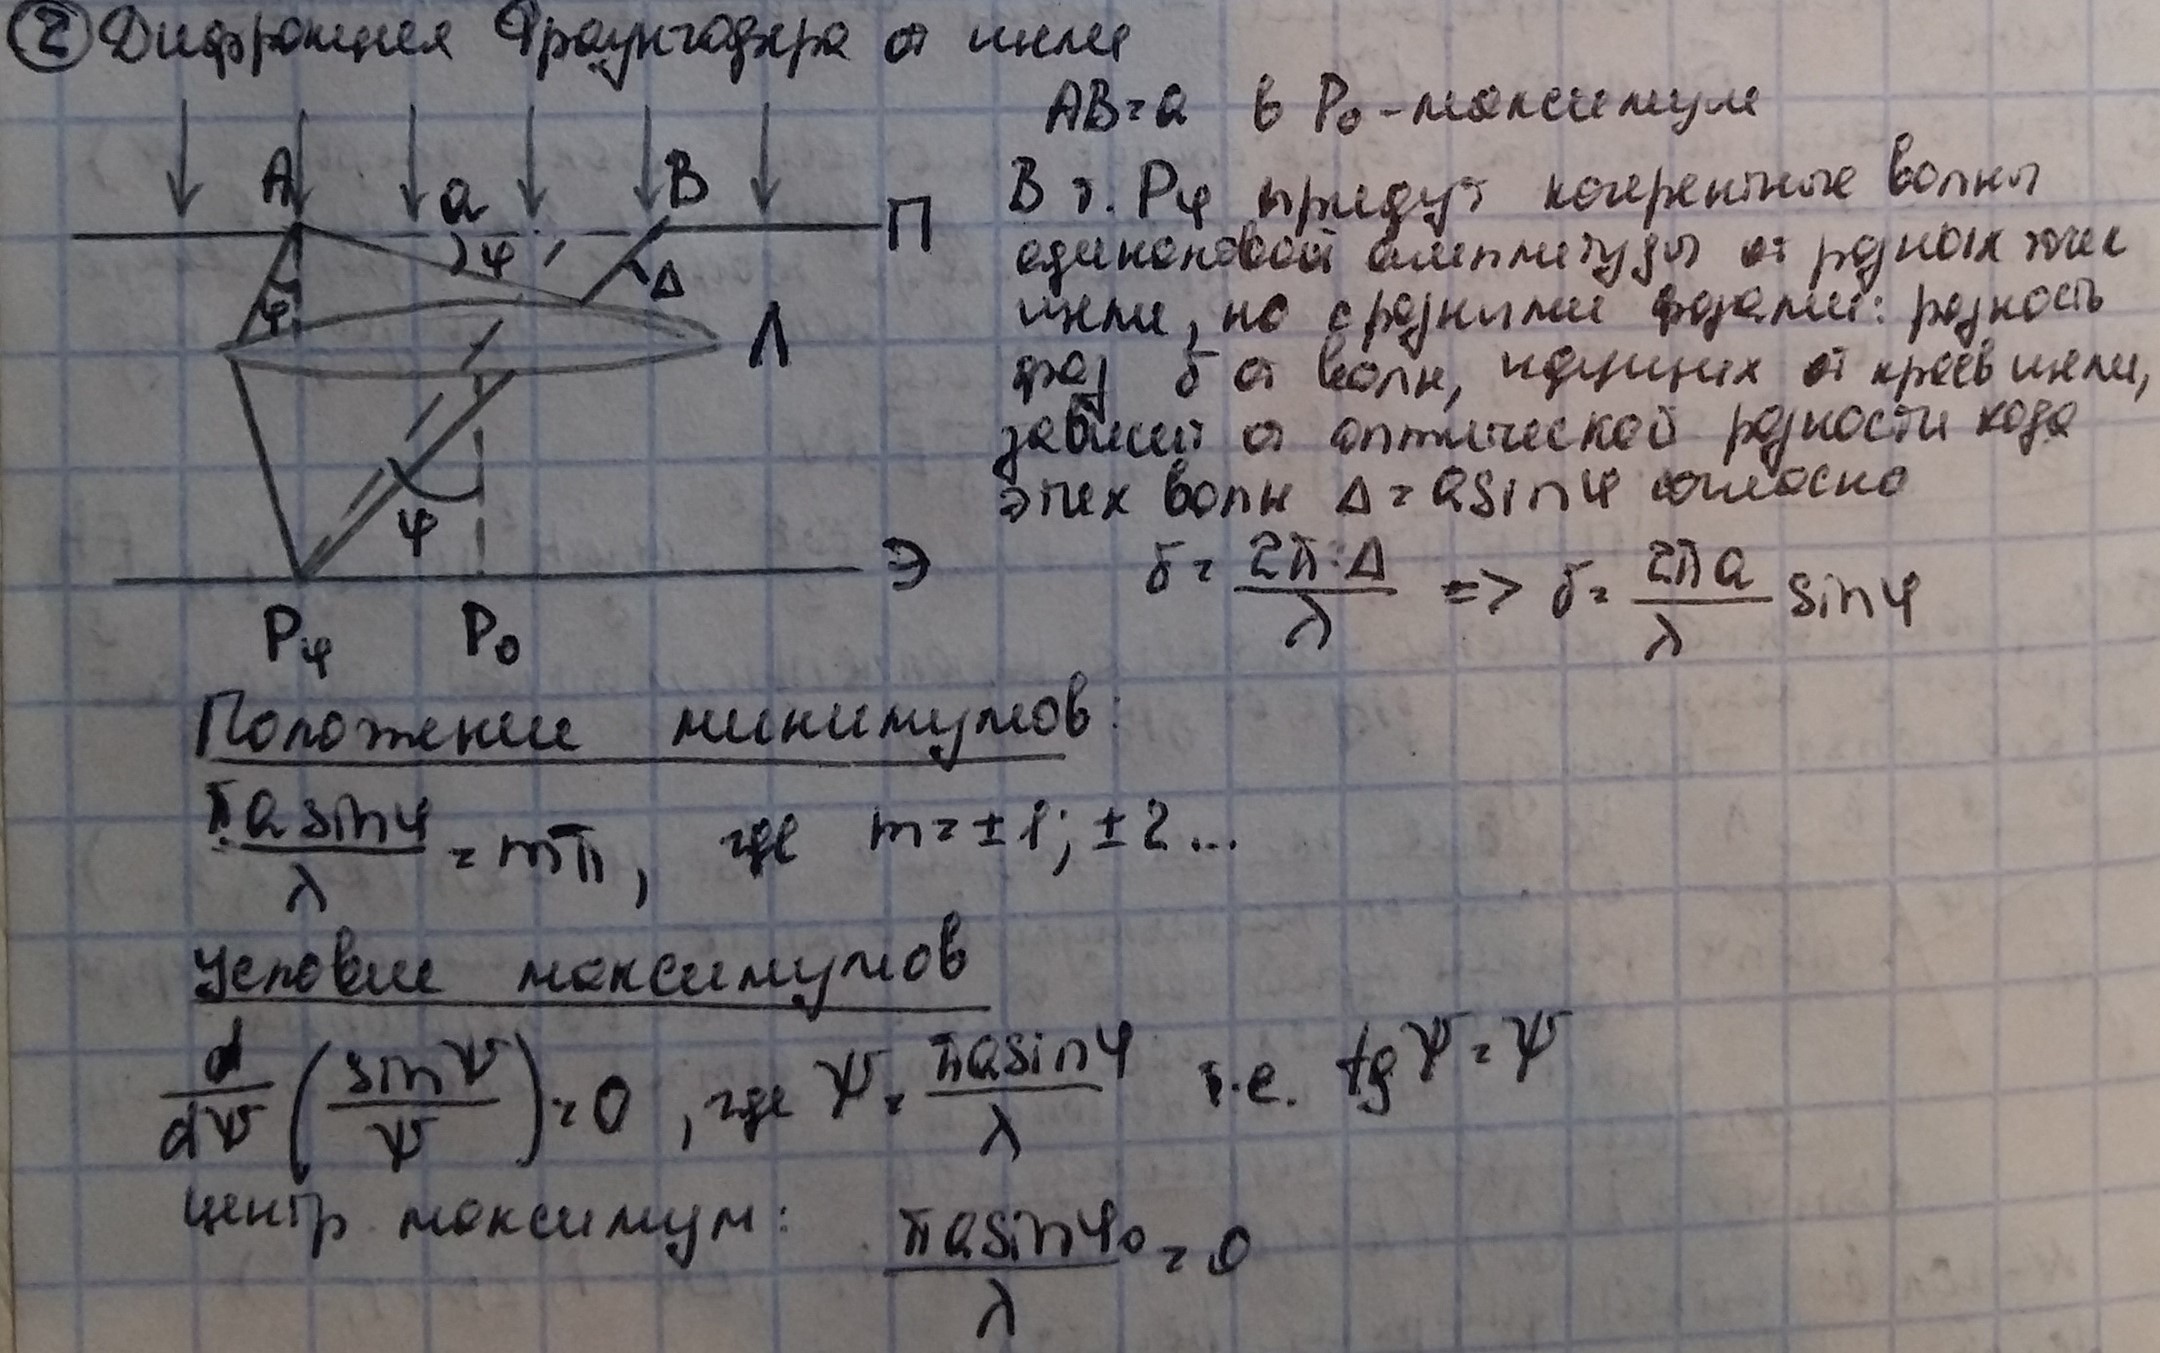 ② Дифракция Фраунгофера от щели
AB = a в P₀ - максимум
A a B П
φ φ Δ
Л
φ
Э
Pφ P₀
В т. Pφ придут когерентные волны
одинаковой амплитуды от разных точек
щели, но с разными фазами: разность
фаз δ от волн, идущих от краёв щели,
зависит от оптической разности хода
этих волн Δ = a sin φ согласно
δ = 2π·Δ / λ => δ = 2πa / λ sin φ
Положение минимумов:
πa sin φ / λ = mπ, где m = ±1; ±2...
Условие максимумов
d/dψ (sin ψ / ψ) = 0, где ψ = πa sin φ / λ т.е. tg ψ = ψ
центр. максимум: πa sin φ₀ / λ = 0